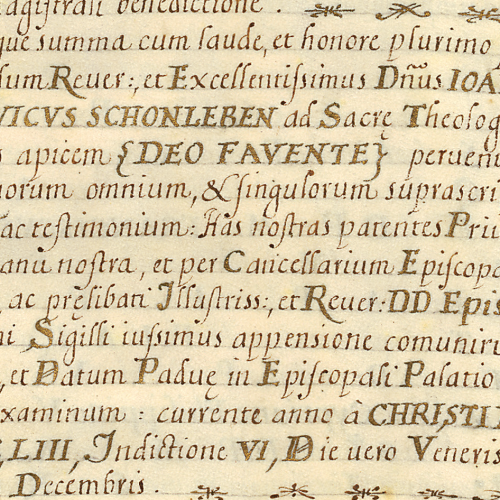 agistrali benedictione.
que summa cum laude, et honore plurimo
dum Reuer:, et Excellentissimus Dñus IOA
VICVS SCHONLEBEN ad Sacrę Theolog
s apicem {DEO FAVENTE} peruen
uorum omnium, & singulorum suprascri
ac testimonium: Has nostras patentes Priu
anu nostra, et per Cancellarium Episcopa
, ac pręlibati Illustriss:, et Reuer: DD Epis
ni Sigilli iussimus appensione comuniri
, et Datum Paduę in Episcopali Palatio
xaminum: currente anno à CHRISTI
LIII, Indictione VI, Die vero Veneris
Decembris.